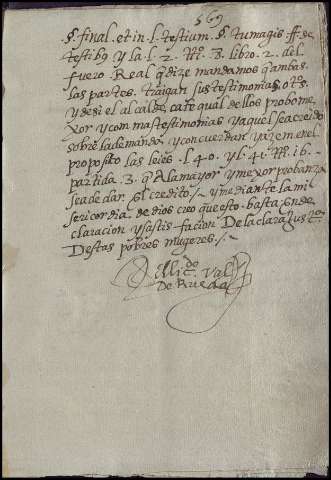 569
§. final. et in. l. testium. §. tu magis. ff. de
testibs y la. l. 2. tito. 3. libro. 2. del
fuero Real q dize mandamos q ambas
las partes. traigan sus testimonias. otos.
y desi el alcalde. cate qual dellos probo me
xor y con mas testimonias y aquel sea creido
sobre la demanda. y concuerdan y azem enel
proposito las leies. l. 40. y l. 41. tito. 16.
partida. 3. q Ala mayor y mexor probanza
se a de dar. el credito /. y mediante la mi
sericordia. de dios creo que esto. basta. en de
claracion y satisfacion De la clara Justa.
Destas pobres mugeres /.
El licdo Val
De Rueda